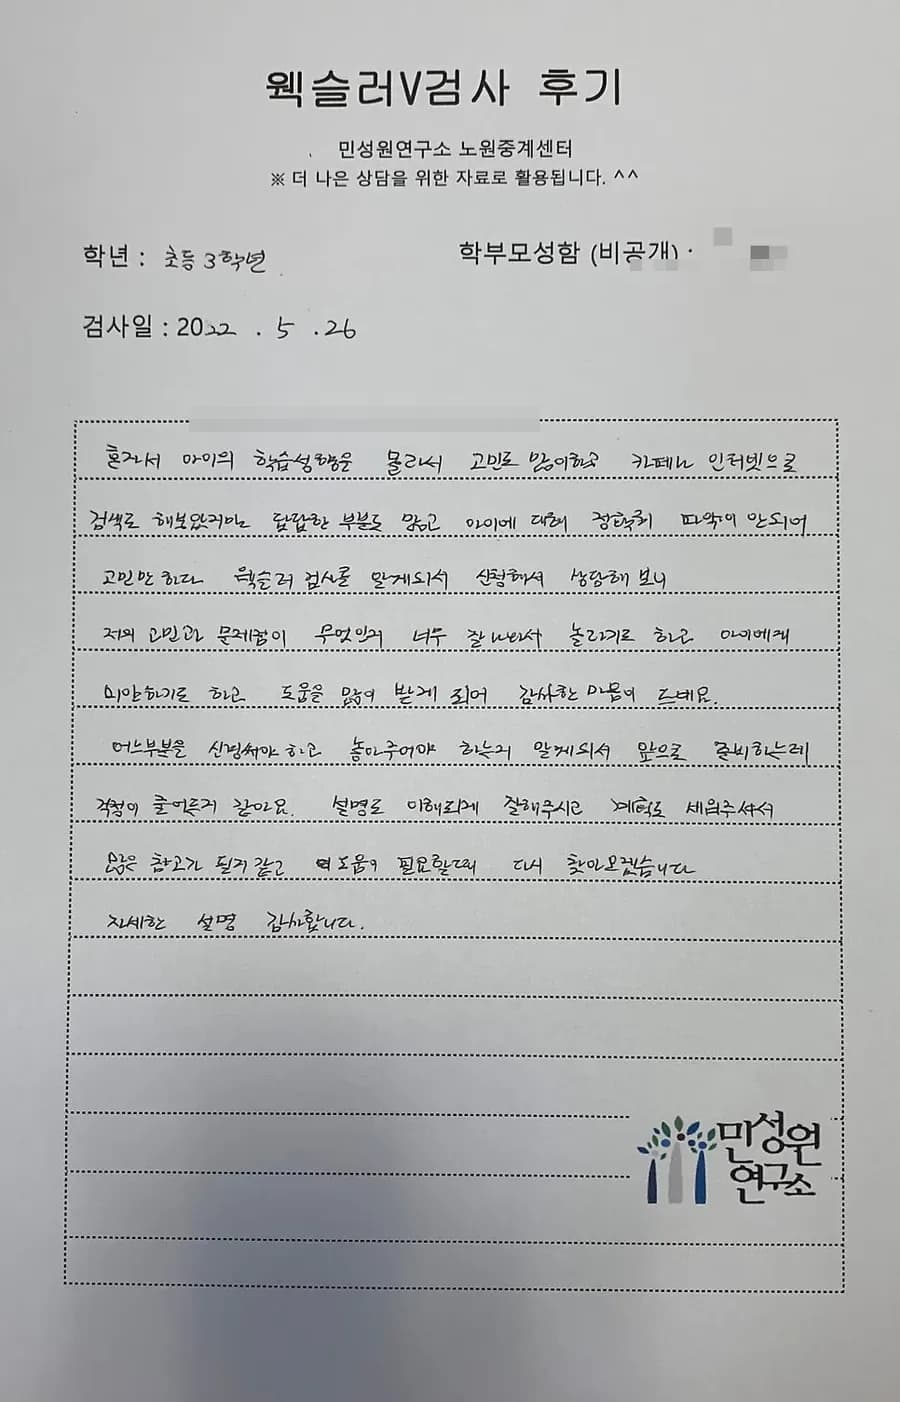 웩슬러V검사 후기
민성원연구소 노원중계센터
※ 더 나은 상담을 위한 자료로 활용됩니다. ^^
학년 : 초등 3학년
학부모성함 (비공개) :
검사일 : 2022 . 5 . 26
혼자서 아이의 학습성향을 몰라서 고민도 많이하고 카페나 인터넷으로
검색도 해보았지만 답답한 부분도 많고 아이에 대해 정확히 파악이 안되어
고민만 하다 웩슬러 검사를 알게되서 신청해서 상담해 보니
저의 고민과 문제점이 무엇인지 너무 잘 나와서 놀라기도 하고 아이에게
미안하기도 하고 도움을 많이 받게 되어 감사한 마음이 드네요.
어느부분을 신경써야 하고 놓아주어야 하는지 알게되서 앞으로 준비하는데
걱정이 줄어든거 같아요. 설명도 이해되게 잘해주시고 계획도 세워주셔서
많은 참고가 될거 같고 또 도움이 필요할때 다시 찾아오겠습니다
자세한 설명 감사합니다.
민성원
연구소